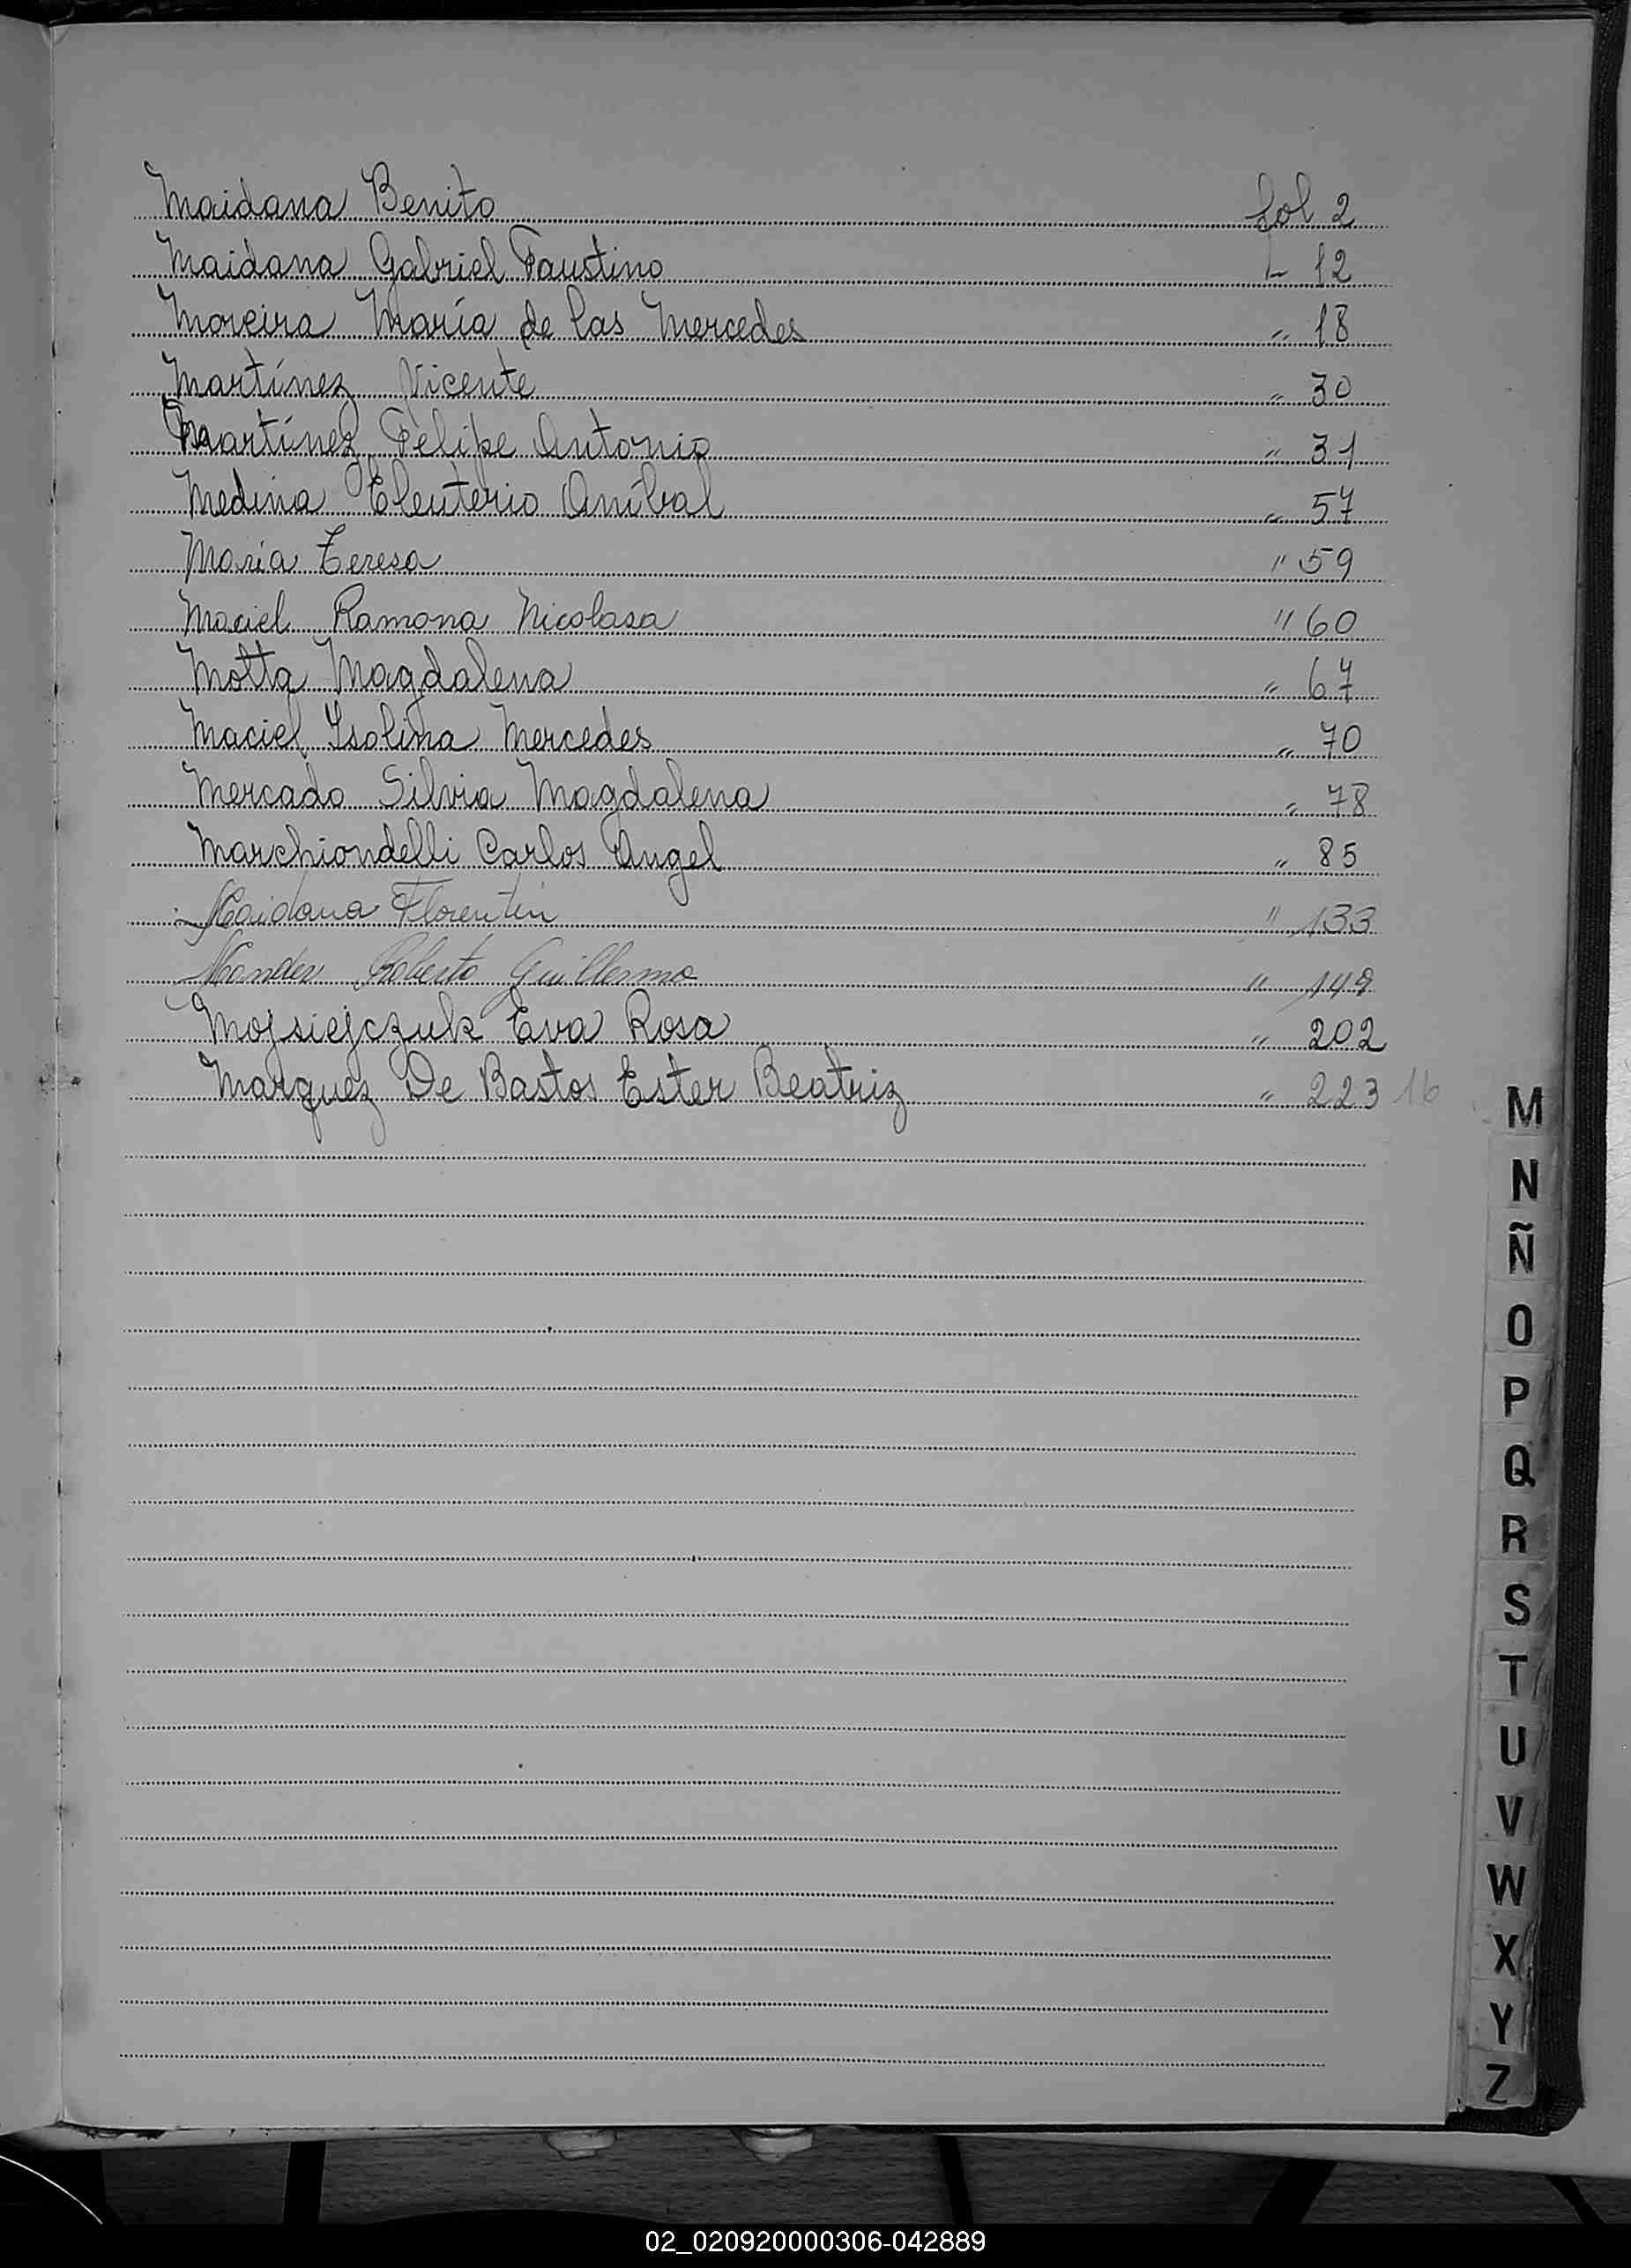 Maidana Benito fol 2
Maidana Gabriel Faustino " 12
Moreira María de las Mercedes " 18
Martínez Vicente " 30
Martínez Felipe Antonio " 31
Medina Eleuterio Aníbal " 57
Maria Teresa " 59
Maciel Ramona Nicolasa " 60
Motta Magdalena " 67
Maciel Isolina Mercedes " 70
Mercado Silvia Magdalena " 78
Marchiondelli Carlos Angel " 85
Maidana Florentin " 133
Roberto Guillermo " 149
Mojsiejczuk Eva Rosa " 202
Marquez De Bastos Ester Beatriz " 223 16
M
N
Ñ
O
P
Q
R
S
T
U
V
W
X
Y
Z
02_020920000306-042889